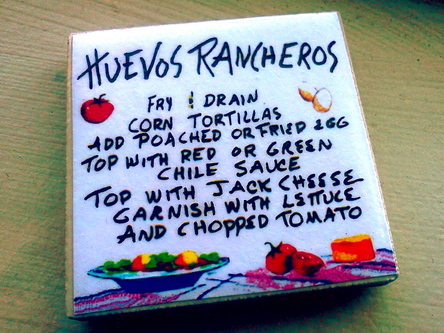 HUEVOS RANCHEROS
FRY & DRAIN
CORN TORTILLAS
ADD POACHED OR FRIED EGG
TOP WITH RED OR GREEN
CHILE SAUCE
TOP WITH JACK CHEESE
GARNISH WITH LETTUCE
AND CHOPPED TOMATO